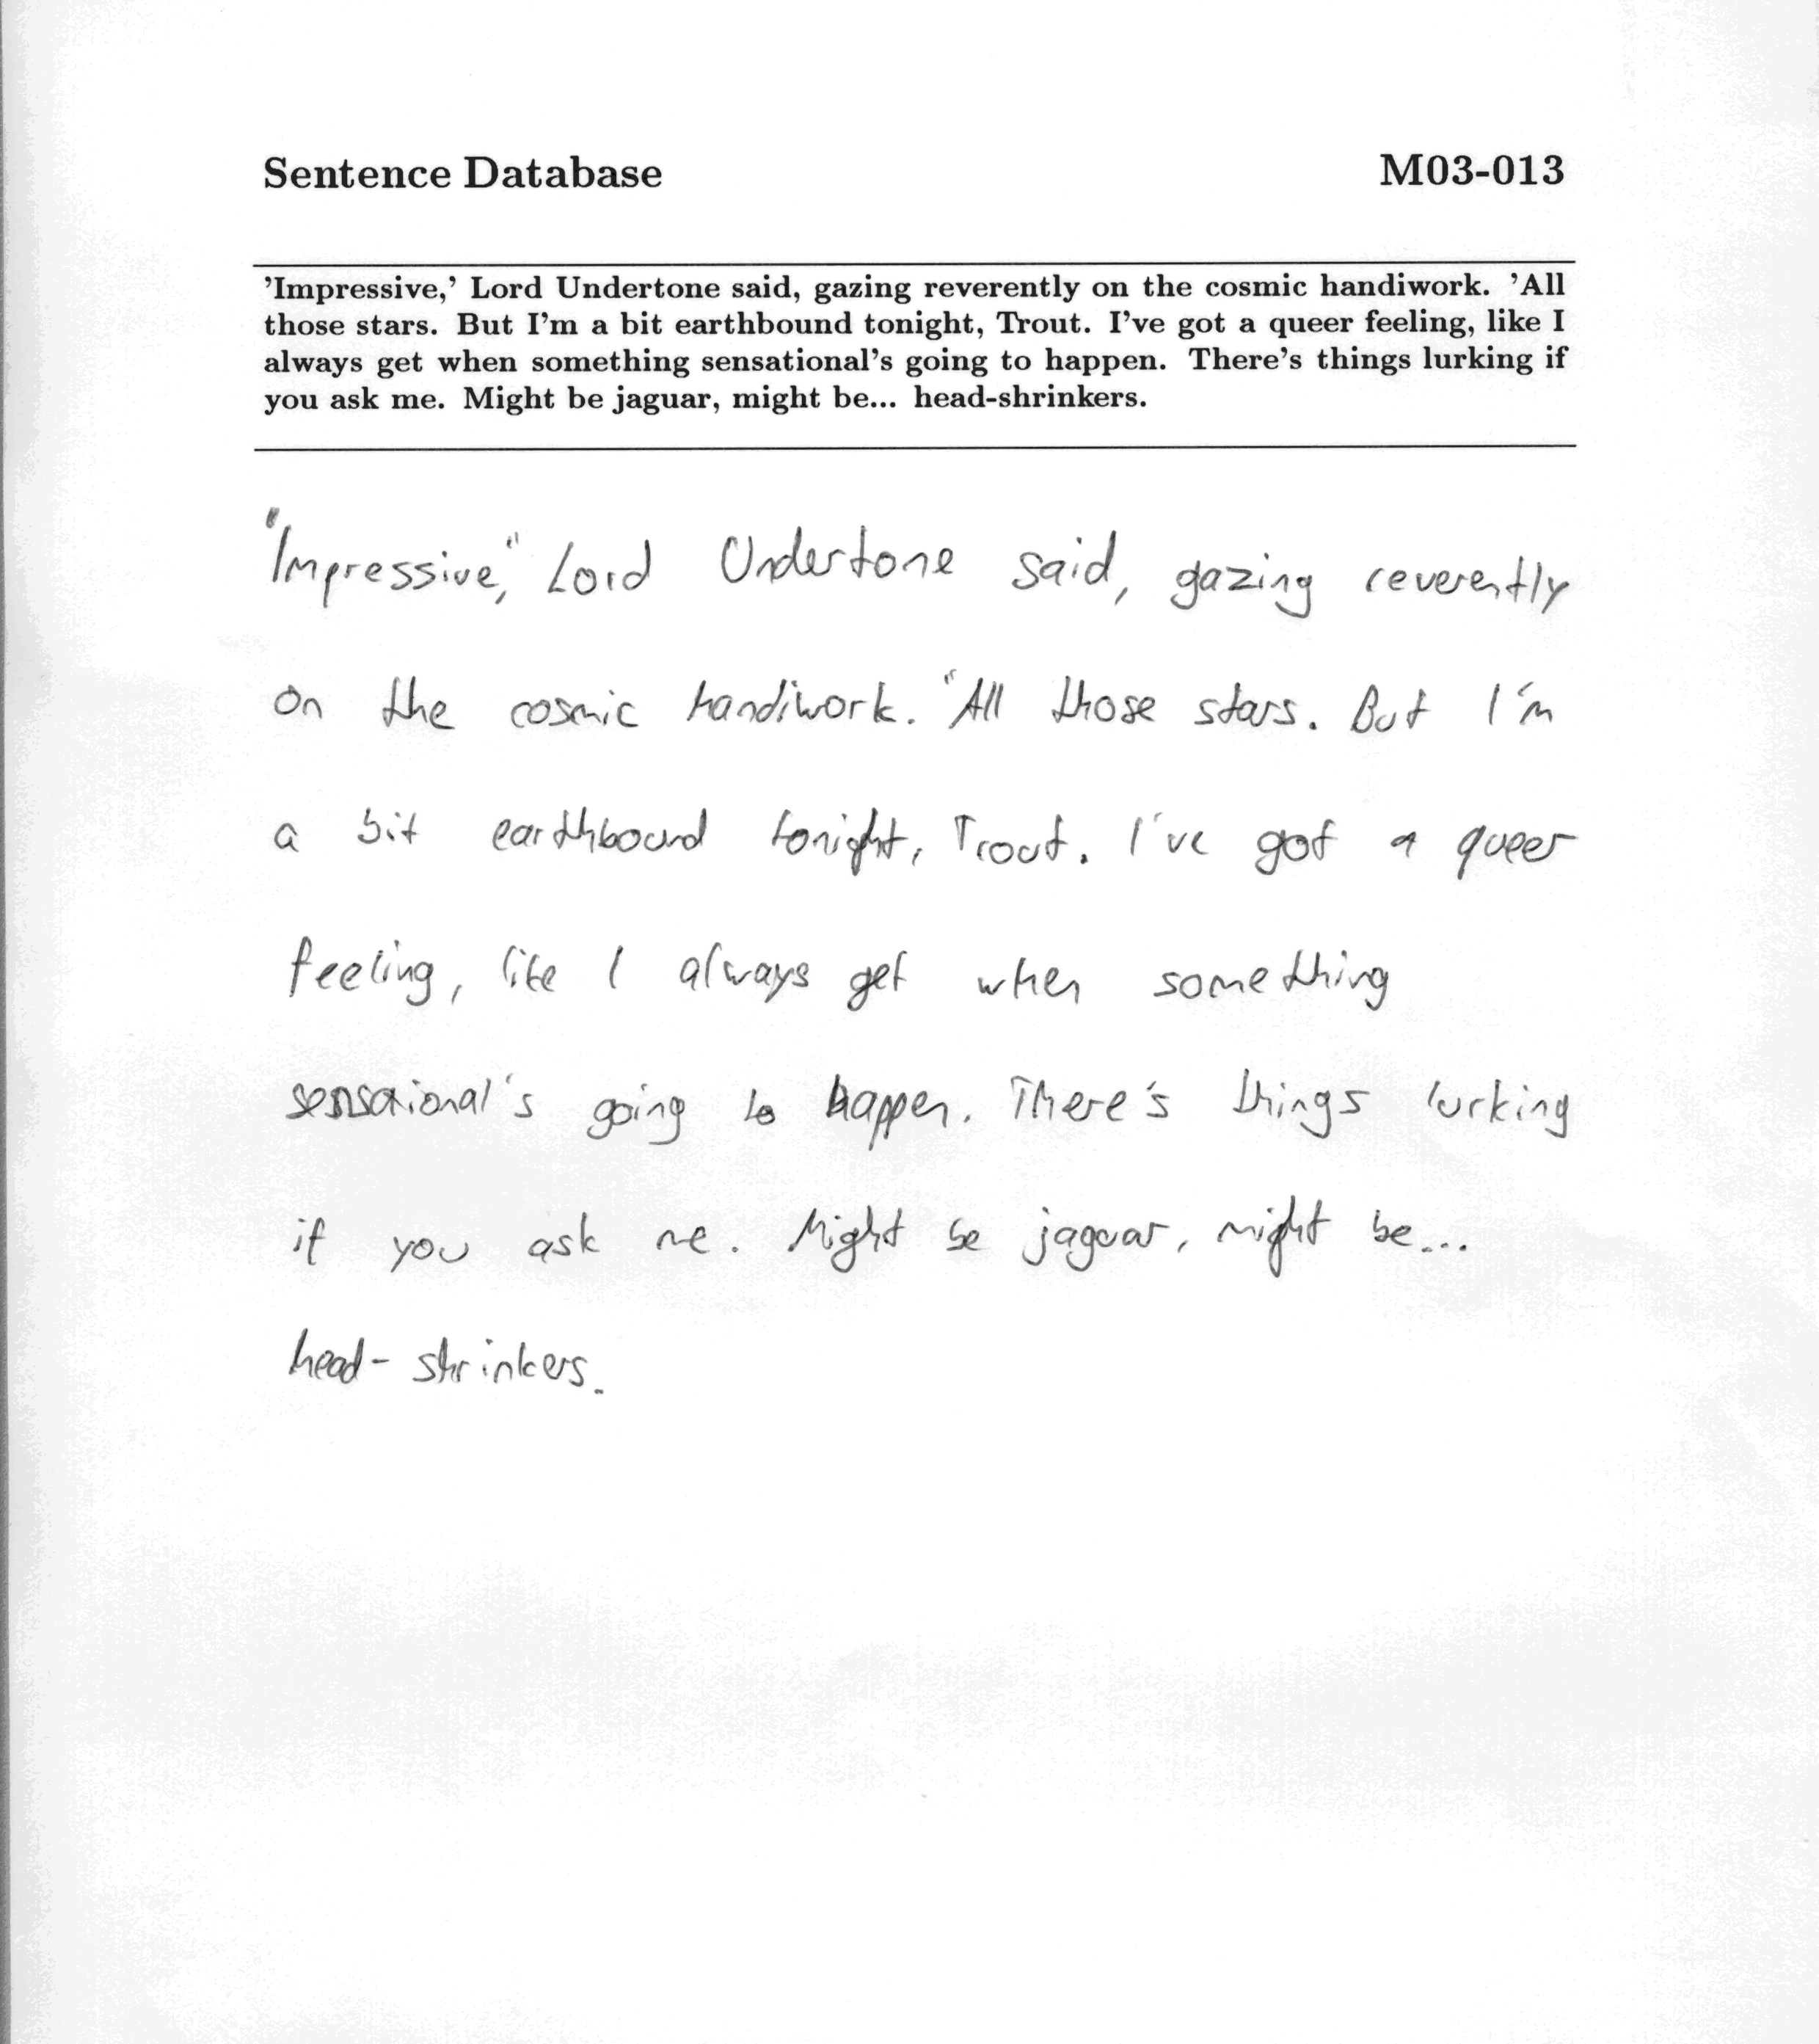 Sentence Database M03-013
'Impressive,' Lord Undertone said, gazing reverently on the cosmic handiwork. 'All
those stars. But I'm a bit earthbound tonight, Trout. I've got a queer feeling, like I
always get when something sensational's going to happen. There's things lurking if
you ask me. Might be jaguar, might be... head-shrinkers.
"Impressive," Lord Undertone said, gazing reverently
on the cosmic handiwork. "All those stars. But I'm
a bit earthbound tonight, Trout. I've got a queer
feeling, like I always get when something
sensaional's going to happen. There's things lurking
if you ask me. Might be jaguar, might be...
head-shrinkers.